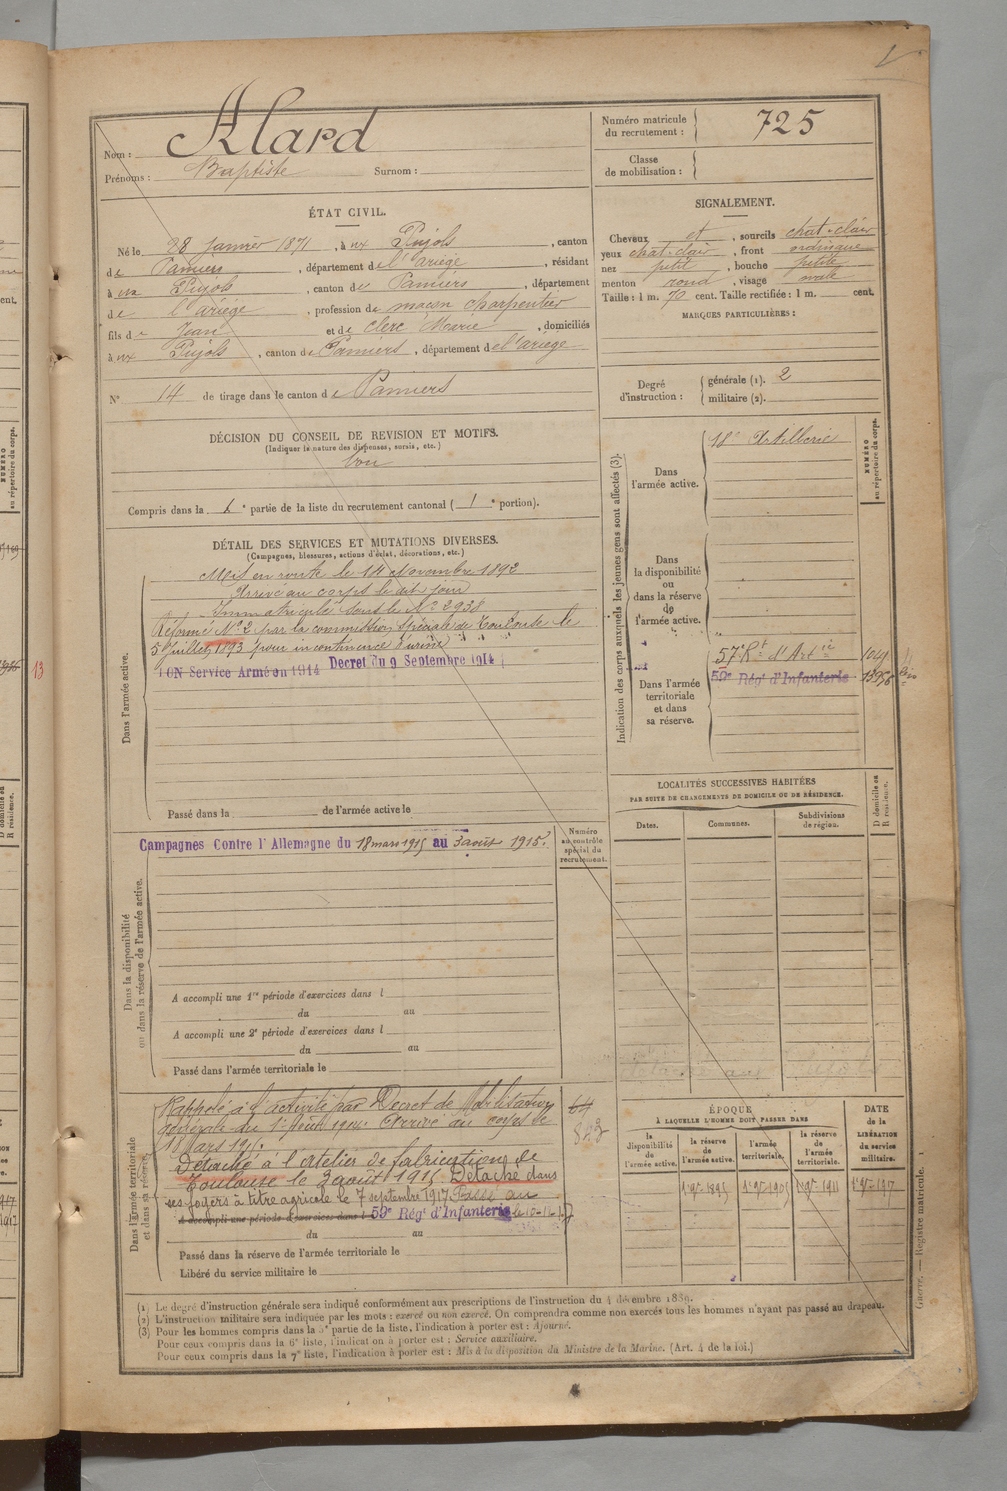 Nom : Alard
Prénoms : Baptiste Surnom :
Numéro matricule du recrutement : 725
Classe de mobilisation :
ÉTAT CIVIL.
Né le 28 janvier 1871, à ux Pujols, canton
de Pamiers, département de l'ariège, résidant
à ux Pujols, canton de Pamiers, département
de l'ariège, profession de maçon charpentier
fils de Jean et de Clerc Marie, domiciliés
à ux Pujols, canton de Pamiers, département de l'ariège
N° 14 de tirage dans le canton de Pamiers
SIGNALEMENT.
Cheveux et, sourcils chat-clair
yeux chat-clair, front ordinaire
nez petit, bouche petite
menton rond, visage ovale
Taille : 1 m. 70 cent. Taille rectifiée : 1 m. cent.
MARQUES PARTICULIÈRES :
Degré d'instruction : générale (1). 2
militaire (2).
DÉCISION DU CONSEIL DE REVISION ET MOTIFS.
(Indiquer la nature des dispenses, sursis, etc.)
bon
Compris dans la 1e partie de la liste du recrutement cantonal (1e portion).
DÉTAIL DES SERVICES ET MUTATIONS DIVERSES.
(Campagnes, blessures, actions d'éclat, décorations, etc.)
Dans l'armée active.
Mis en route le 14 Novembre 1892
Arrivé au corps le dit jour
Immatriculé sous le N° 2938
Réformé N° 2 par la commission spéciale de Toulouse le
5 juillet 1893 pour incontinence d'urine
ON Service Armé en 1914 Decret du 9 Septembre 1914
Passé dans la de l'armée active le
Indication des corps auxquels les jeunes gens sont affectés (3).
NUMÉRO au répertoire du corps.
Dans l'armée active.
18e Artillerie
Dans la disponibilité ou dans la réserve de l'armée active.
Dans l'armée territoriale et dans sa réserve.
57e Rt d'Artie
59e Régt d'Infanterie
LOCALITÉS SUCCESSIVES HABITÉES
PAR SUITE DE CHANGEMENTS DE DOMICILE OU DE RÉSIDENCE.
Dates. Communes. Subdivisions de région. D domicile ou R résidence.
Dans la disponibilité ou dans la réserve de l'armée active.
Campagnes Contre l'Allemagne du 18 mars 1915 au 3 août 1915.
Numéro au contrôle spécial du recrutement.
A accompli une 1re période d'exercices dans l
du au
A accompli une 2e période d'exercices dans l
du au
Passé dans l'armée territoriale le
Dans l'armée territoriale et dans sa réserve.
Rappelé à l'activité par Decret de Mobilisation
générale du 1er août 1914. Arrivé au corps le
18 Mars 1915.
Détaché à l'atelier de fabrication de
Toulouse le 3 août 1915 Détaché dans
ses foyers à titre agricole le 7 septembre 1917 Passé au
A accompli une période d'exercices dans l 59e Régt d'Infanterie
du au
Passé dans la réserve de l'armée territoriale le
Libéré du service militaire le
ÉPOQUE
À LAQUELLE L'HOMME DOIT PASSER DANS
la disponibilité de l'armée active. la réserve de l'armée active. l'armée territoriale. la réserve de l'armée territoriale.
DATE de la LIBÉRATION du service militaire.
Guerre. — Registre matricule.
(1) Le degré d'instruction générale sera indiqué conformément aux prescriptions de l'instruction du 4 décembre 1889.
(2) L'instruction militaire sera indiquée par les mots : exercé ou non exercé. On comprendra comme non exercés tous les hommes n'ayant pas passé au drapeau.
(3) Pour les hommes compris dans la 5e partie de la liste, l'indication à porter est : Ajourné.
Pour ceux compris dans la 6e liste, l'indication à porter est : Service auxiliaire.
Pour ceux compris dans la 7e liste, l'indication à porter est : Mis à la disposition du Ministre de la Marine. (Art. 4 de la loi.)